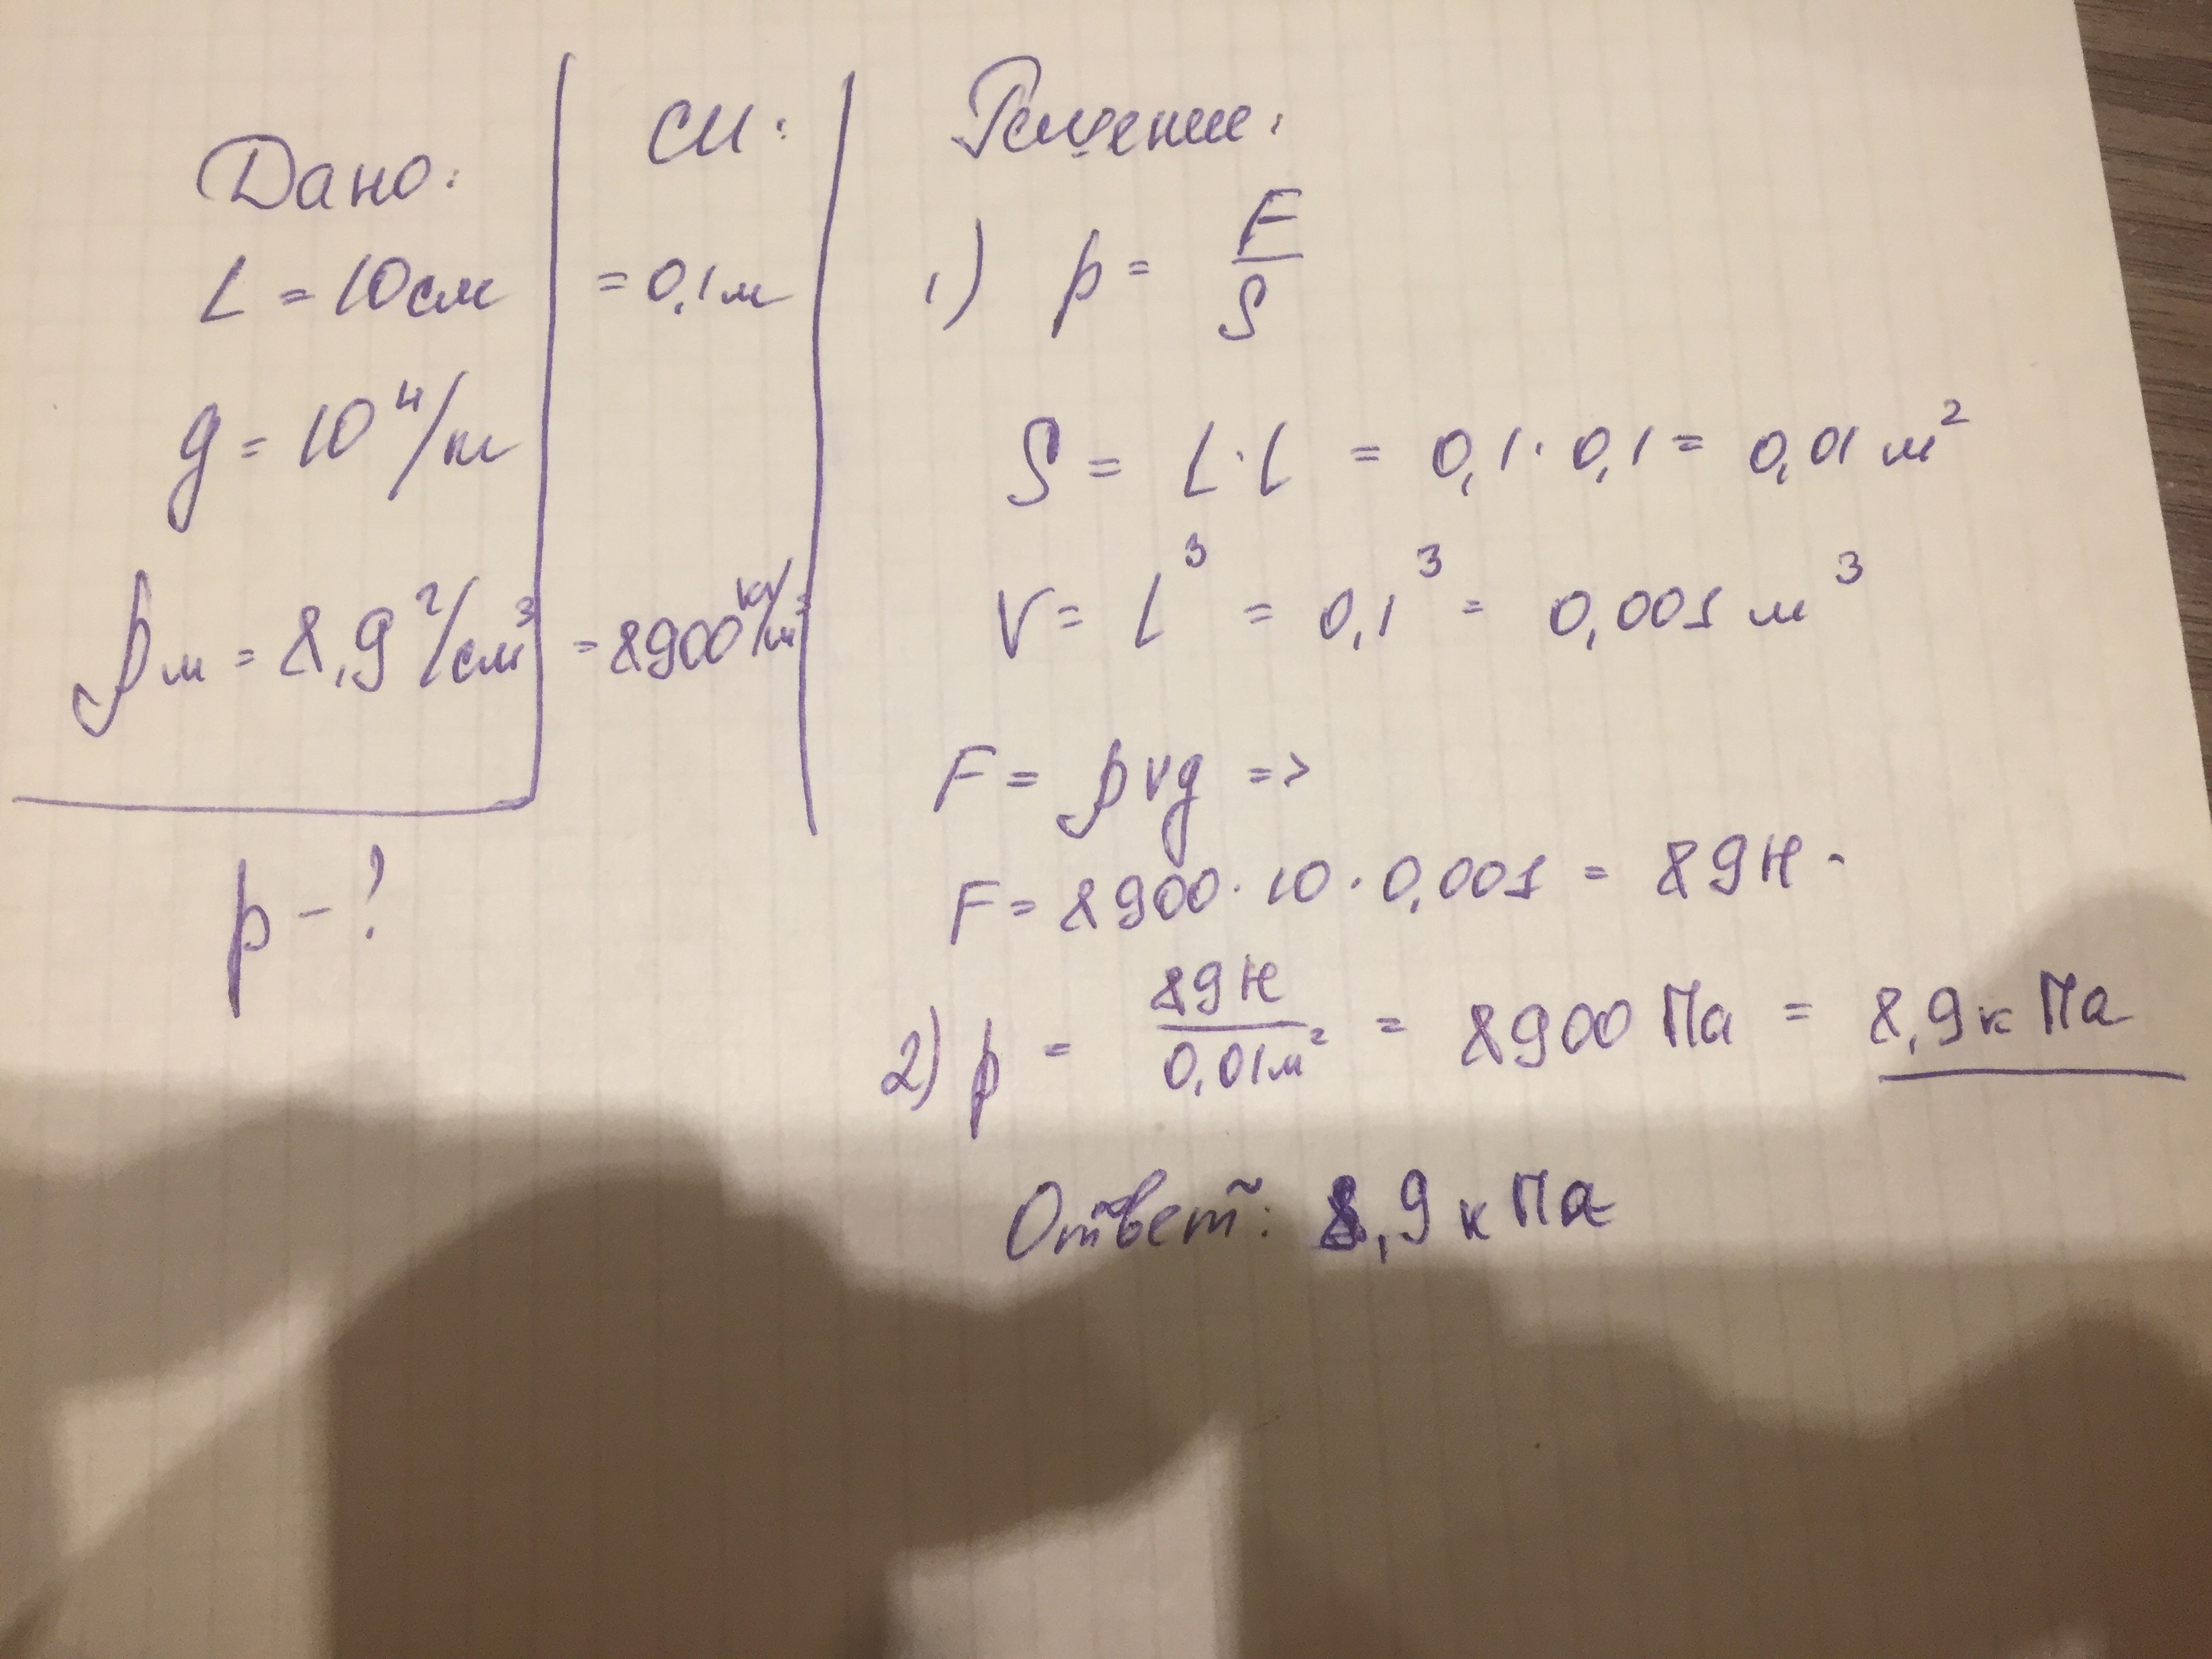 Дано:
L = 10 см
g = 10 Н/кг
ρм = 8,9 г/см³
p - ?
СИ:
= 0,1 м
= 8900 кг/м³
Решение:
1) p = F/S
S = L · L = 0,1 · 0,1 = 0,01 м²
V = L³ = 0,1³ = 0,001 м³
F = ρVg =>
F = 8900 · 10 · 0,001 = 89 Н -
2) p = 89 Н/0,01 м² = 8900 Па = 8,9 кПа
Ответ: 8,9 кПа